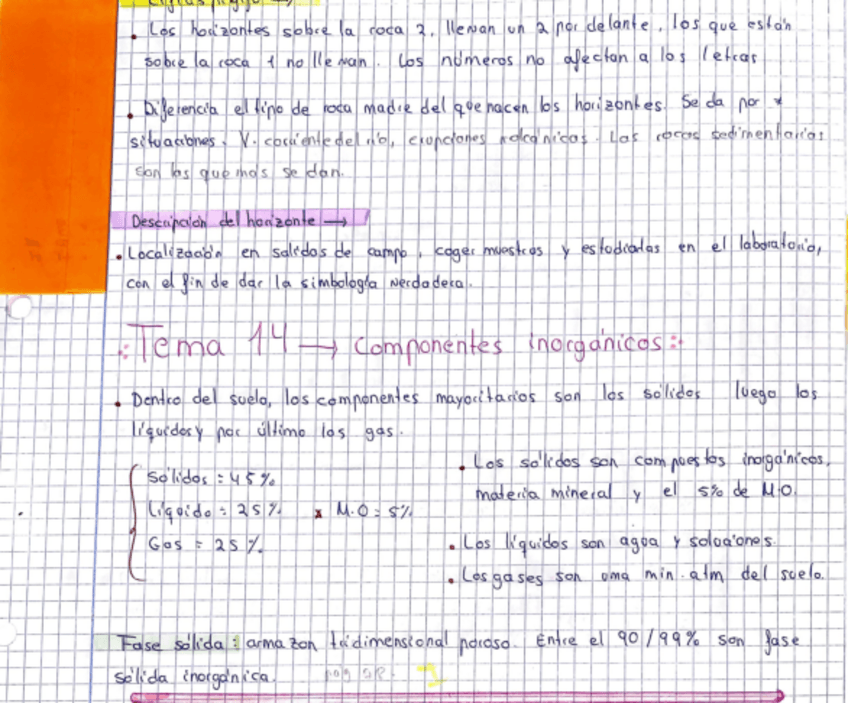 • Los horizontes sobre la roca 2, llevan un 2 por delante, los que están
sobre la roca 1 no llevan. Los números no afectan a las letras
• Diferencia el tipo de roca madre del que nacen los horizontes. Se da por
situaciones. V. corriente del río, erupciones volcánicas. Las rocas sedimentarias
son las que más se dan.
Descripción del horizonte →
• Localización en salidas de campo, coger muestras y estudiadas en el laboratorio,
con el fin de dar la simbología verdadera.
Tema 14 → componentes inorgánicos:
• Dentro del suelo, los componentes mayoritarios son los sólidos luego los
líquidos y por último los gas.
Sólidos = 45%
Líquido = 25% * M.O = 5%
Gas = 25%
• Los sólidos son compuestos inorgánicos,
materia mineral y el 5% de M.O.
• Los líquidos son agua y soluciones.
• Los gases son uma min. atm del suelo.
Fase sólida: armazon tridimensional poroso. Entre el 90/99% son fase
sólida inorgánica.